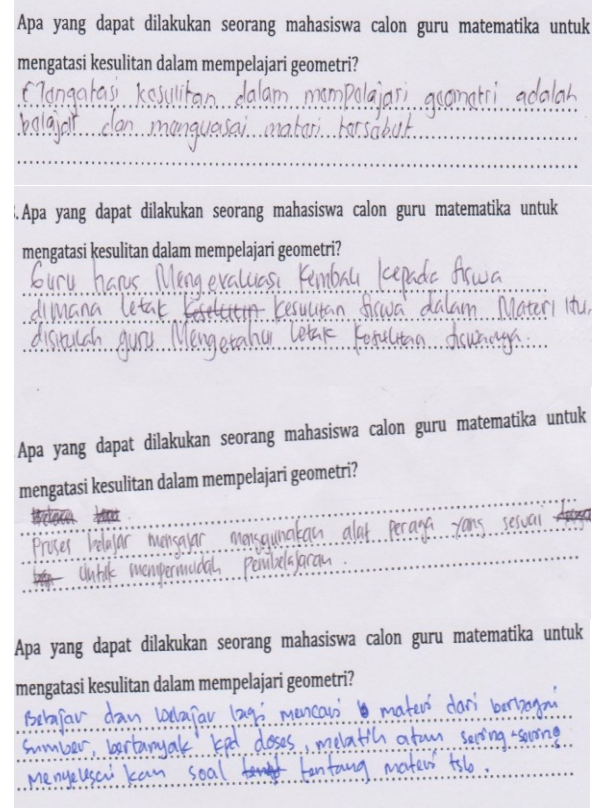 Apa yang dapat dilakukan seorang mahasiswa calon guru matematika untuk
mengatasi kesulitan dalam mempelajari geometri?
Mengatasi kesulitan dalam mempelajari geometri adalah
belajar dan menguasai materi tersebut
. Apa yang dapat dilakukan seorang mahasiswa calon guru matematika untuk
mengatasi kesulitan dalam mempelajari geometri?
Guru harus Mengevaluasi kembali kepada siswa
dimana letak kesulitan siswa dalam Materi itu,
disitulah guru Mengetahui letak kesulitan siswanya.
Apa yang dapat dilakukan seorang mahasiswa calon guru matematika untuk
mengatasi kesulitan dalam mempelajari geometri?
Proses belajar mengajar menggunakan alat peraga yang sesuai
untuk mempermudah pembelajaran.
Apa yang dapat dilakukan seorang mahasiswa calon guru matematika untuk
mengatasi kesulitan dalam mempelajari geometri?
Belajar dan belajar lagi mencari materi dari berbagai
sumber, bertanyak kpd doses, melatih atau sering-sering
menyelesaikan soal tentang materi tsb.